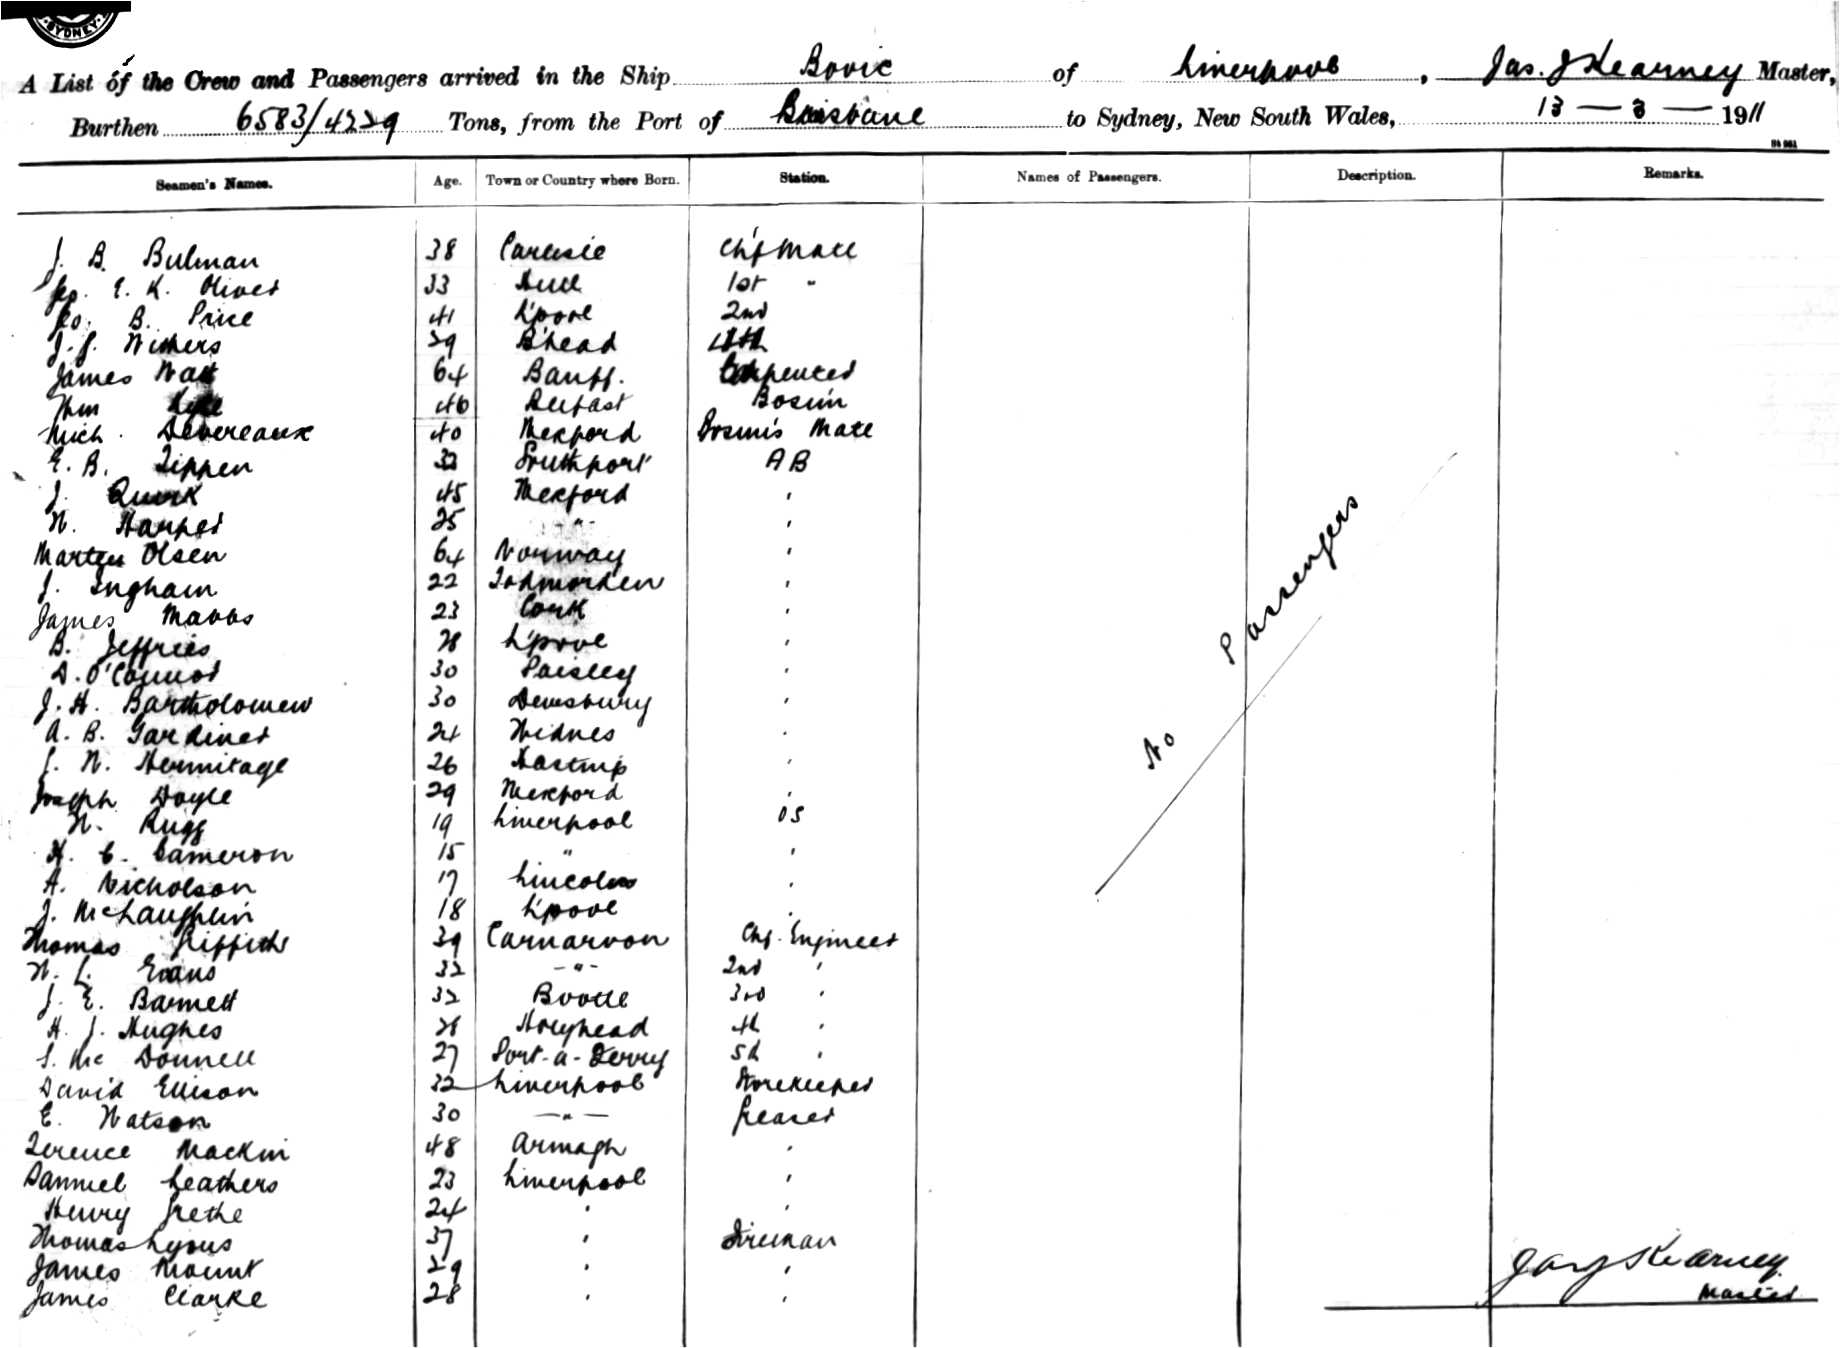 SYDNEY
A List of the Crew and Passengers arrived in the Ship Bovic of Liverpool, Jas. J Kearney Master,
Burthen 6583/4229 Tons, from the Port of Brisbane to Sydney, New South Wales, 13 — 3 — 1911
Seamen's Names. Age. Town or Country where Born. Station. Names of Passengers. Description. Remarks.
J. B. Bulman 38 Carlisle Ch'f Mate
Geo. E. K. Oliver 33 Hull 1st "
Geo. B. Price 41 L'pool 2nd
J. J. Withers 29 B'head
James Watt 64 Banff. Carpenter
Wm 46 Belfast Bosun
Mich. Devereaux 40 Wexford Bosun's Mate
E. B. Tippen 32 Southport A B
J. Quirk 45 Wexford "
W. Harper 25 -"- "
Marten Olsen 64 Norway "
J. Ingham 22 Todmorden "
James Mabbs 23 Cork "
B. Jeffries 28 L'pool "
D. O'Connor 30 Paisley "
J. H. Bartholomew 30 Dewsbury "
A. B. Gardiner 24 Widnes "
J. W. Hermitage 26 "
Joseph Doyle 29 Wexford "
W. Rugg 19 Liverpool O S
H. C. Cameron 15 " "
A. Nicholson 17 Lincoln "
J. McLaughlin 18 L'pool "
Thomas Griffiths 39 Carnarvon Chf. Engineer
W. L. Evans 32 -"- 2nd "
J. E. Barnett 32 Bootle 3rd "
H. J. Hughes 28 Holyhead 4th "
S. Mc Donnell 27 Port-a-Derry 5th "
David Ellison 32 Liverpool Storekeeper
E. Watson 30 —"— Greaser
Terence Mackin 48 Armagh "
Samuel Leathers 23 Liverpool "
Henry Grethe 24 " "
Thomas Lyons 37 " Fireman
James Mount 29 " "
James Clarke 28 " "
No Passengers
Jas J Kearney
Master